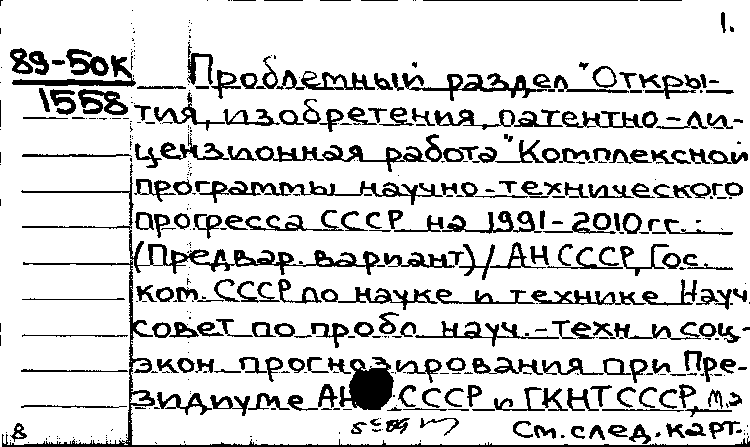 1.
89-50К
1558
Проблемный раздел "Откры-
тия, изобретения, патентно-ли-
цензионная работа" Комплексной
программы научно-технического
прогресса СССР на 1991-2010гг.:
(Предвар. вариант) / АН СССР, Гос.
ком. СССР по науке и технике Науч
совет по пробл науч.-техн. и соц-
экон. прогнозирования при Пре-
зидиуме АН СССР и ГКНТ СССР,
8
См. след. карт.